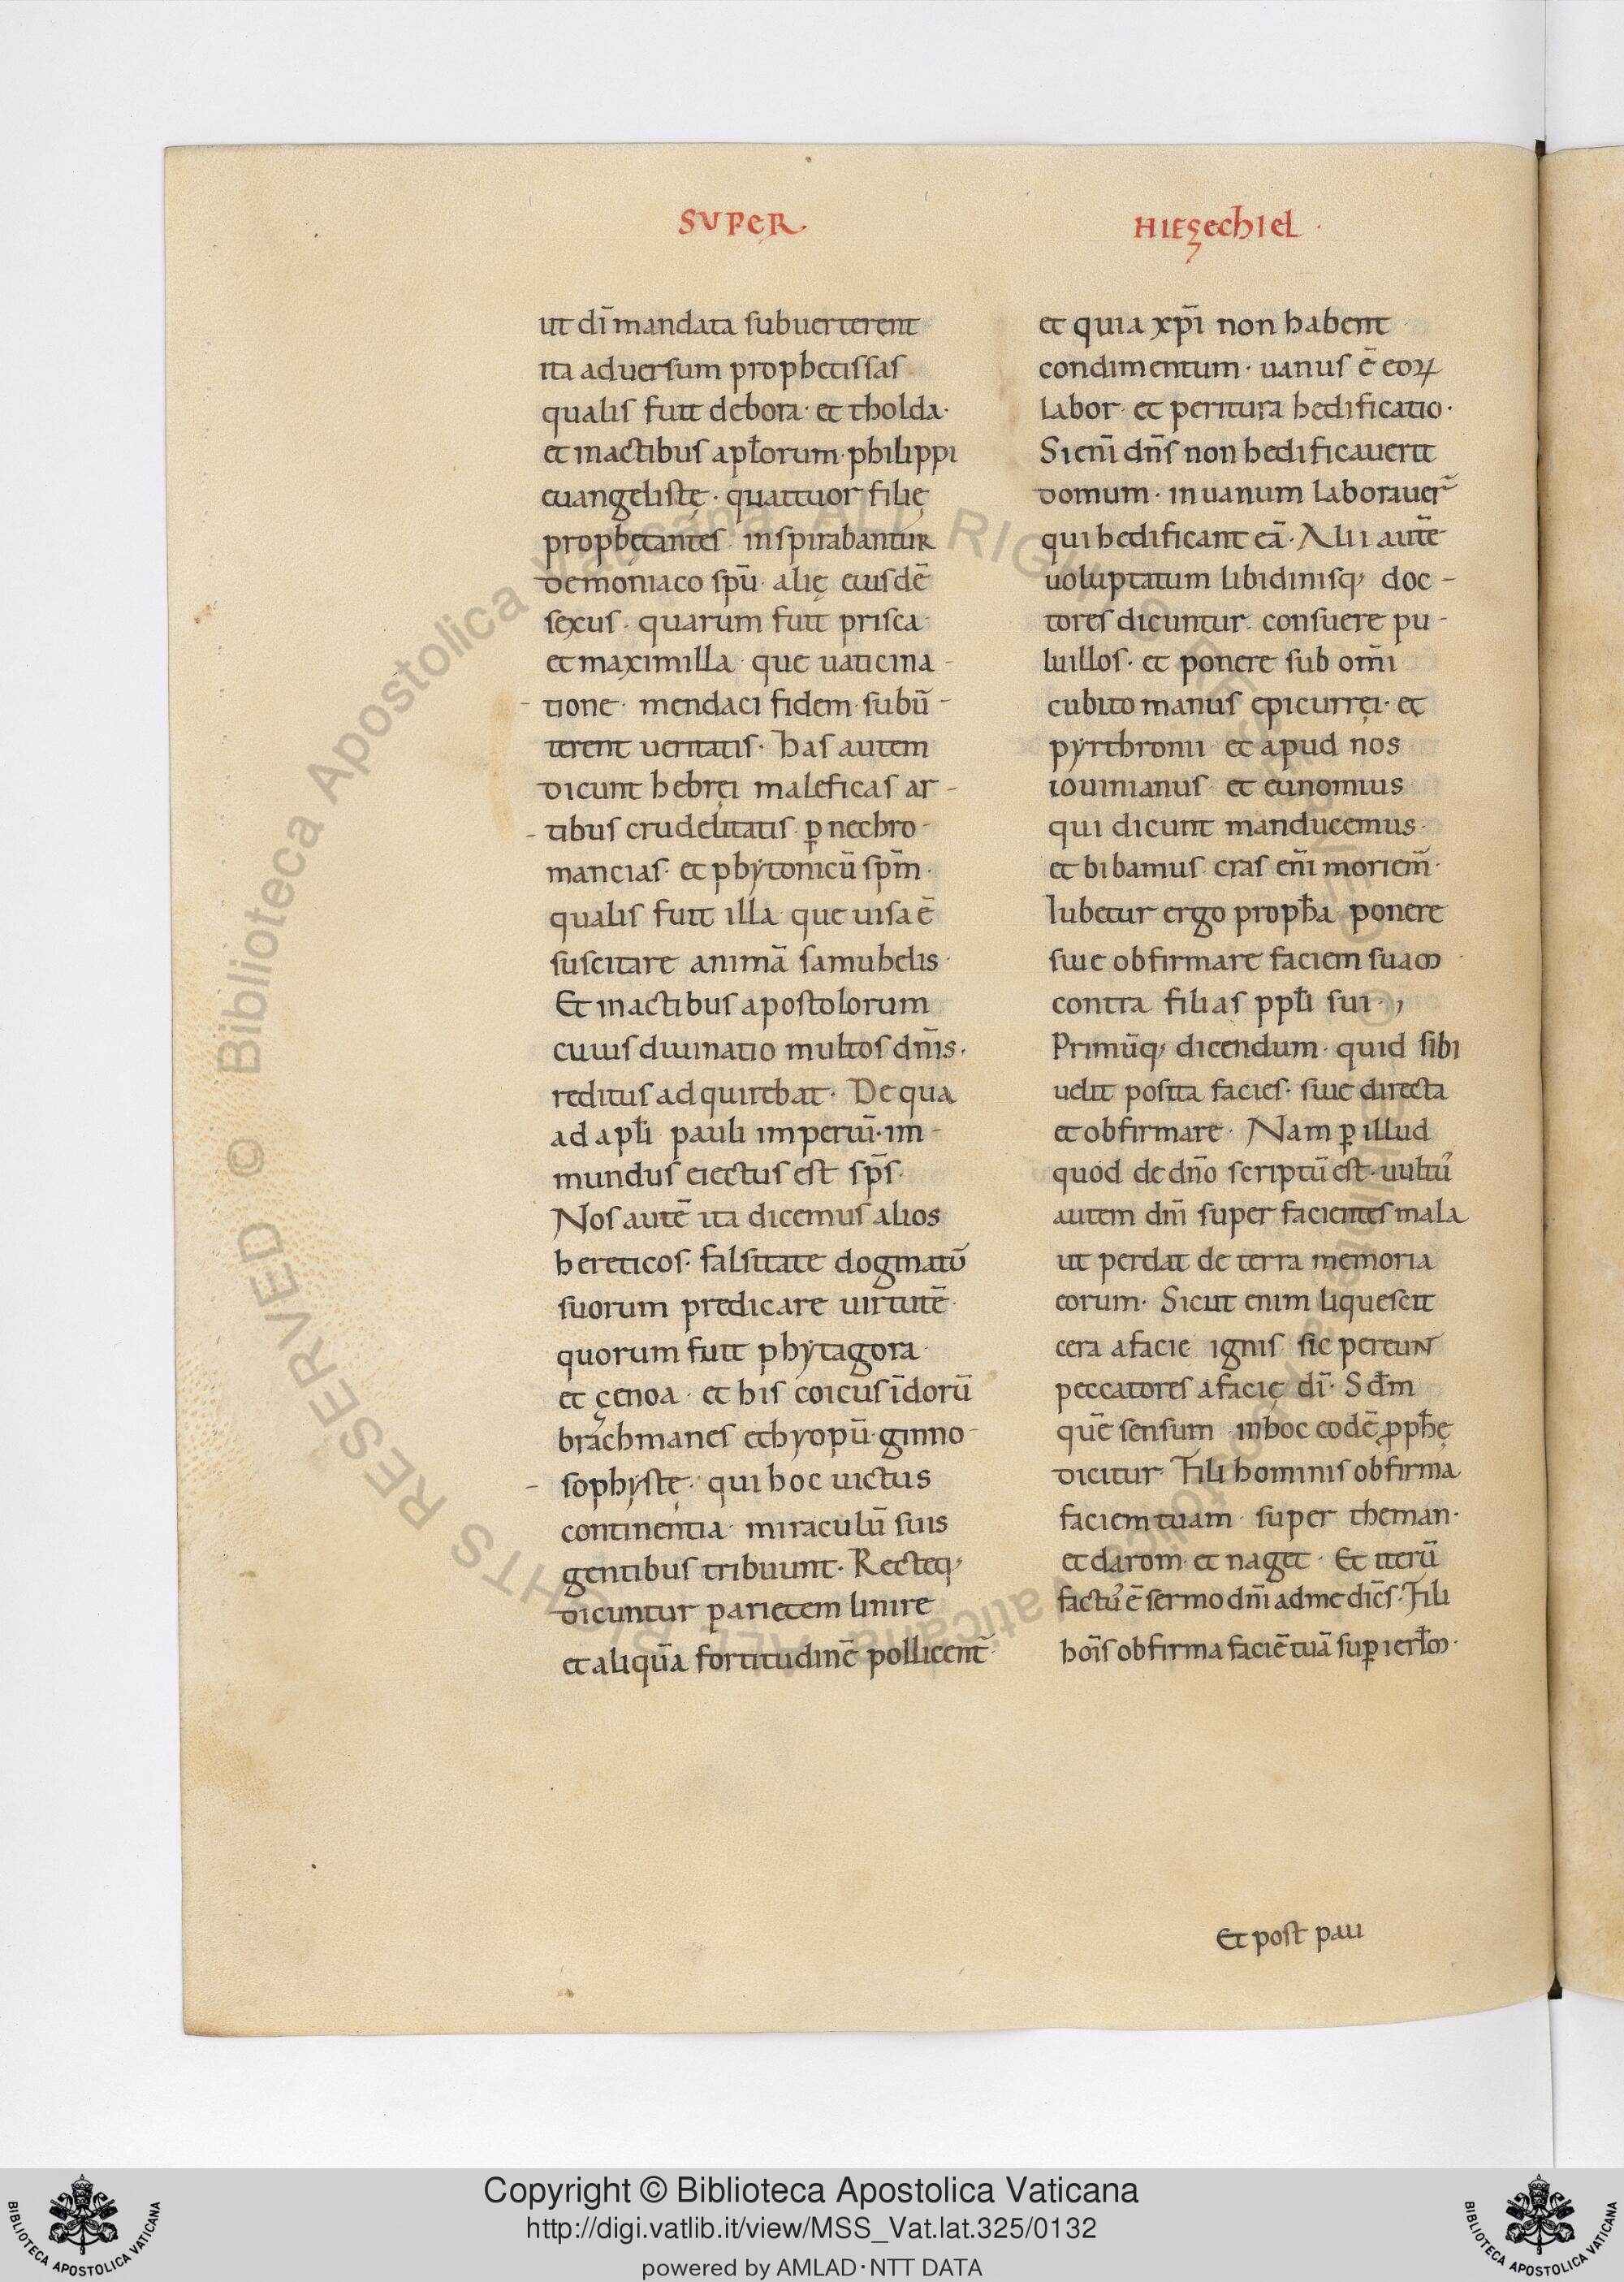 SUPER
ut dī mandata subuerterent
ita aduersum prophetissas
qualis fuit debora· et tholda·
et in actibus apl̄orum· philippi
euangelistę· quattuor filię
prophetantes· inspirabantur
demoniaco spū· alię eiusdē
sexus· quarum fuit prisca
et maximilla· que uaticina-
tione· mendaci fidem· subū-
terent ueritatis· has autem
dicunt hebręi maleficas ar-
tibus crudelitatis· ꝑ nechro-
mancias· et phytonicū spm̄·
qualis fuit illa· que uisa ē
suscitare animā samuhelis·
Et in actibus apostolorum
cuius diuinatio multos dnīs·
reditus adquirebat· De qua
ad apl̄i pauli imperiū· im-
mundus eiectus est sps̄·
Nos autē ita dicemus alios
hereticos· falsitate dogmatū
suorum predicare uirtutē·
quorum fuit phytagora·
et çenoa· et his coicus īdorū
brachmanes ethyopū· ginno-
sophystę· qui hoc uictus
continentia· miraculū suis
gentibus tribuunt· Recteq;
dicuntur parietem linire
et aliquā fortitudinē pollicent̄·
HIEZechiel·
et quia xpī non habent
condimentum· uanus ē eoꝝ
labor· et peritura hedificatio·
Si enī dns̄ non hedificauerit
domum· in uanum laborauer̄
qui hedificant eā· Alii autē
uoluptatum libidinisq; doc-
tores dicuntur· consuere pu-
luillos· et ponere sub om̄i
cubito manus epicurręi· et
pyrthronii et apud nos
iouinianus· et eunomius
qui dicunt manducemus·
et bibamus· cras enī moriem̄·
Iubetur ergo proph̄a ponere
siue obfirmare faciem suam·
contra filias ppl̄i sui·,
Primūq; dicendum· quid sibi
uelit posita facies· siue directa
et obfirmare· Nam ꝑ illud
quod de dn̄o scriptū est· uultu᾽
autem dnī super facientes mala
ut perdat de terra memoria
eorum· Sicut enim liquescit
cera a facie ignis· sic pereunt
peccatores a facię dī· Scd̄m
quē sensum· in hoc eodē ꝓph̄ę
dicitur· Fili hominis obfirma
faciem tuam· super theman·
et darom· et naget· Et iterū
factu᾽ ē sermo dnī ad me dic̄s· Fili
hoīs obfirma faciē tuā suꝑ ierl̄m·
Et post pau
Copyright © Biblioteca Apostolica Vaticana
http://digi.vatlib.it/view/MSS_Vat.lat.325/0132
powered by AMLAD·NTT DATA
BIBLIOTECA APOSTOLICA VATICANA
BIBLIOTECA APOSTOLICA VATICANA
© Biblioteca Apostolica Vaticana ALL RIGHTS RESERVED